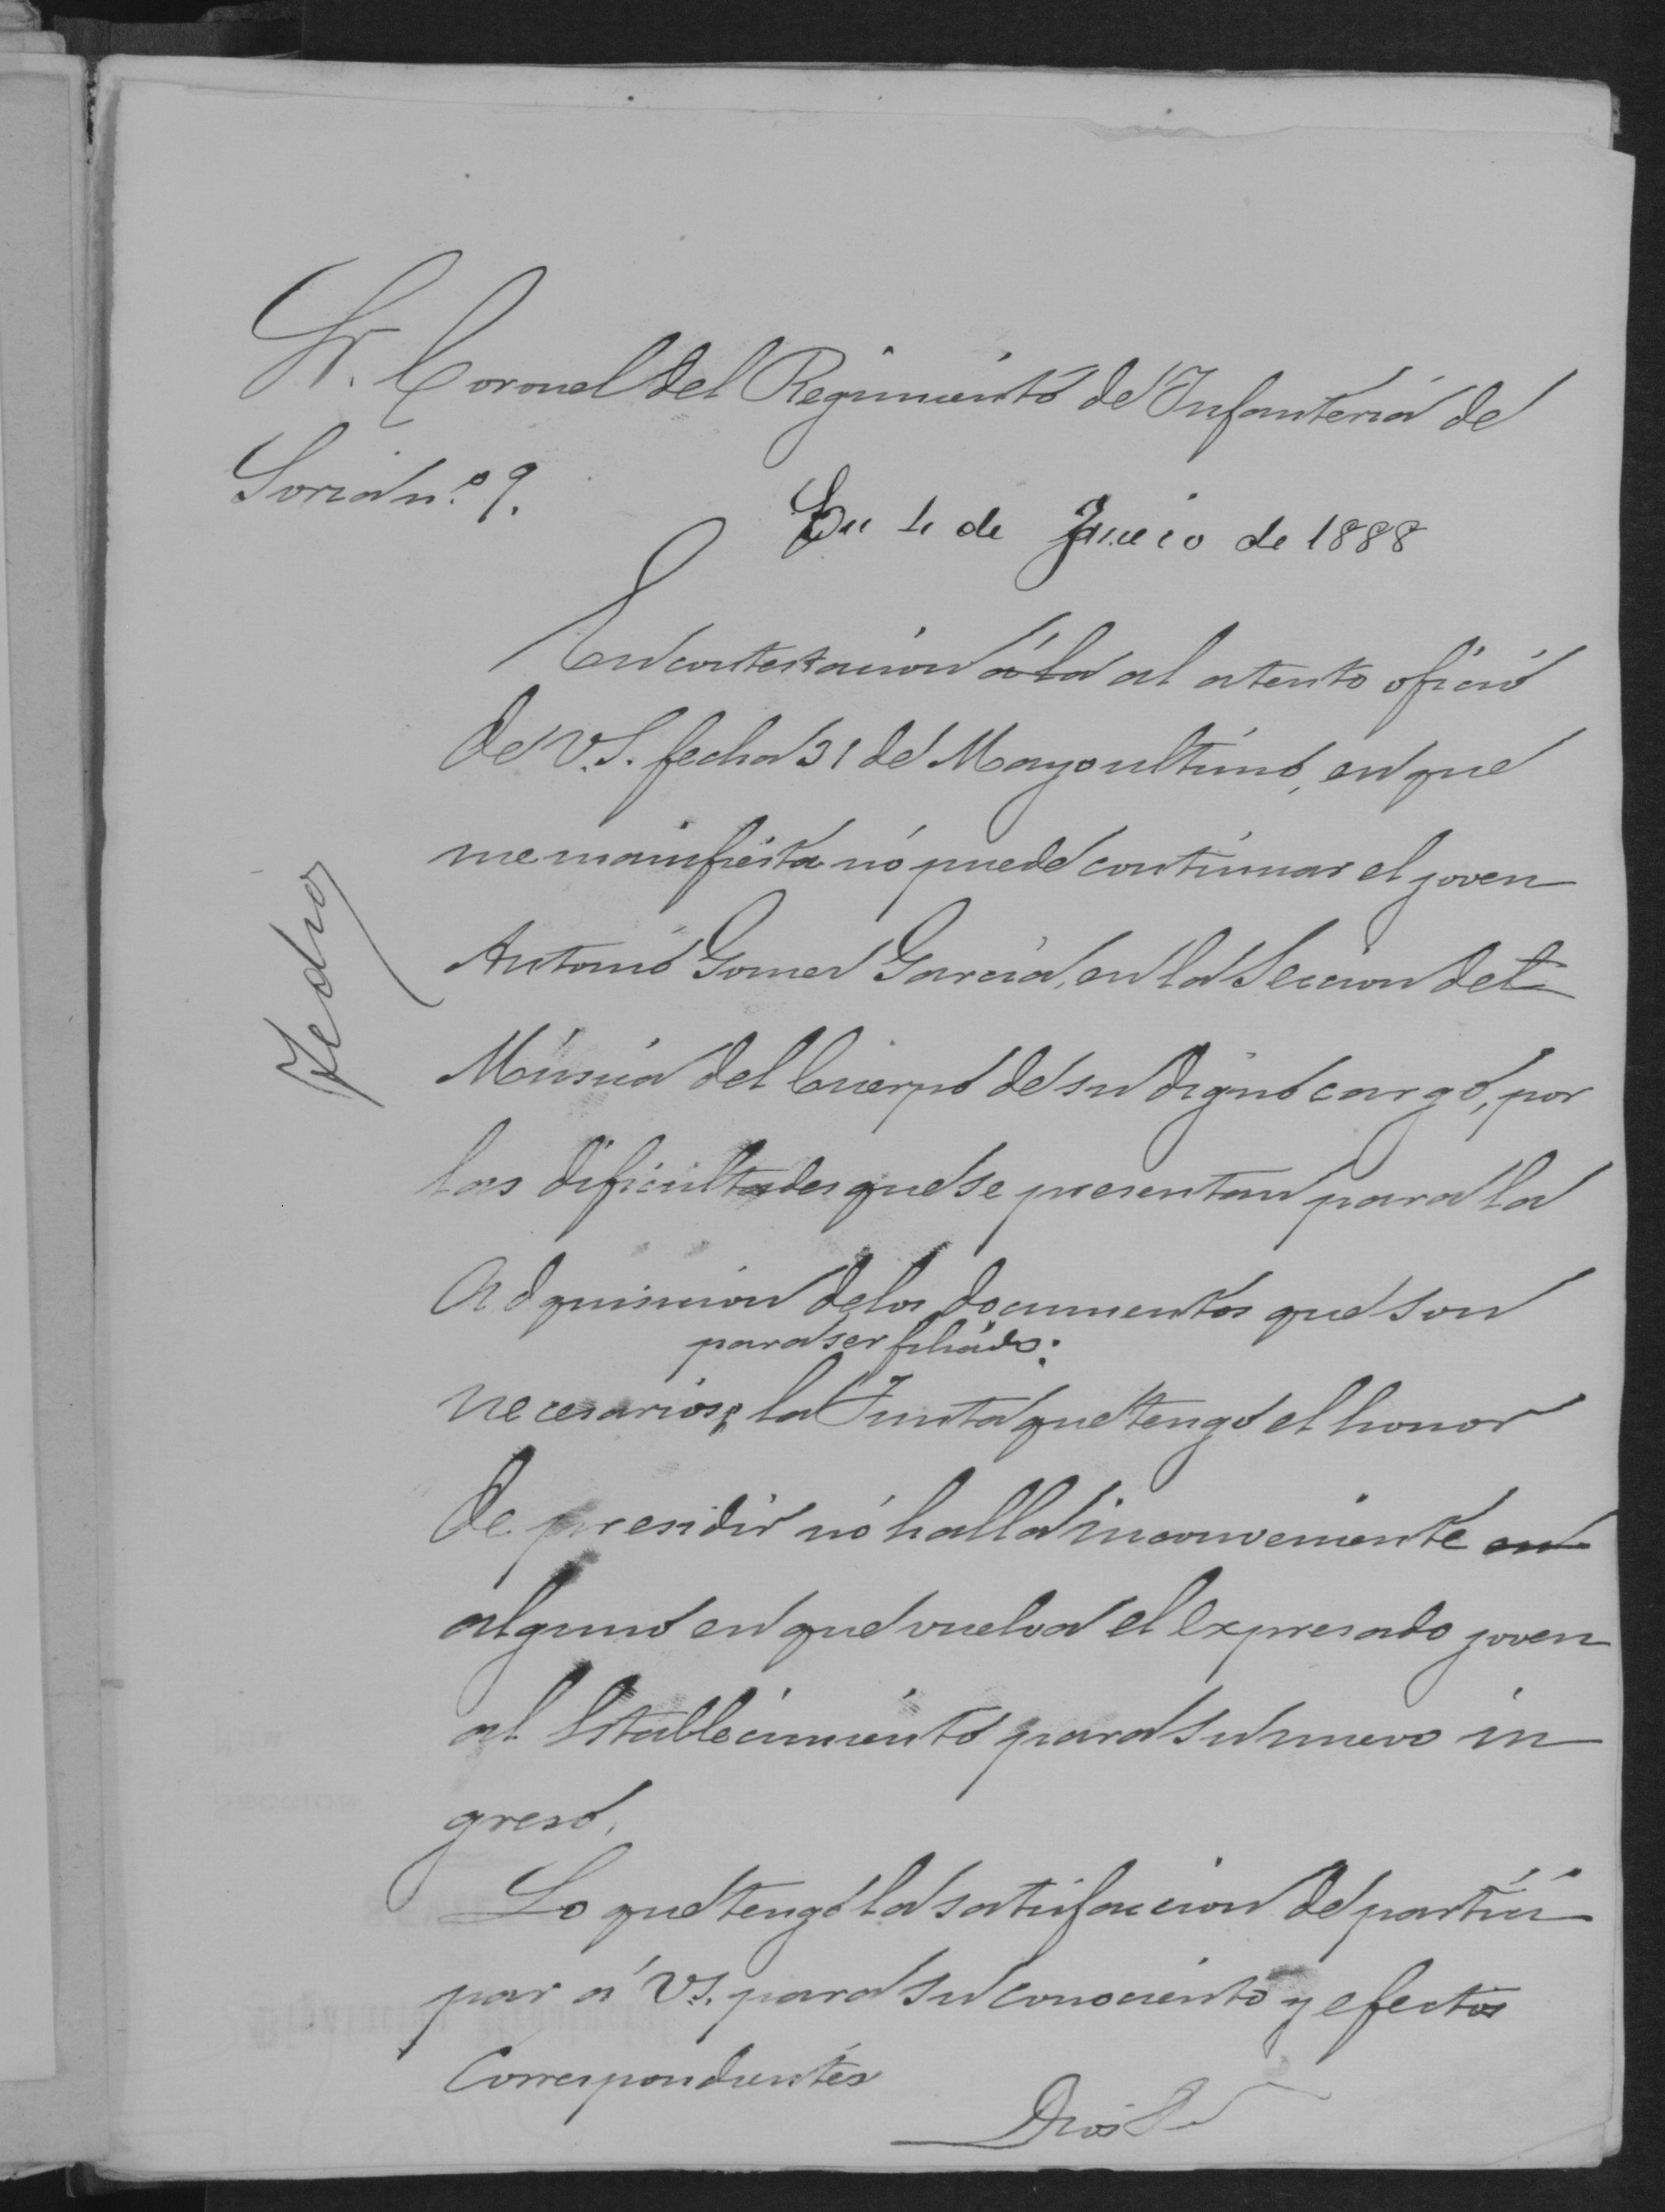 Sr. Coronel del Regimiento de Infanteria de
Soria n.º 9.
En 4 de Junio de 1888
En contestacion á la al atento oficio
de V.S. fecha 31 de Mayo ultimo, en que
me manifiesta nó puede continuar el joven
Antonio Gomez Garcia, en la Seccion de
Música del Cuerpo de su digno cargo, por
las dificultades que se presentan para la
Adquisicion de los documentos que son
para ser filiado:
necesarios, la Junta que tengo el honor
de presidir nó halla inconveniente en
alguno en que vuelva el expresado joven
al Establecimiento para su nuevo in
greso.
Lo que tengo la satisfaccion de partici
par á V.S. para su conociento y efectos
Correspondientes
Dios